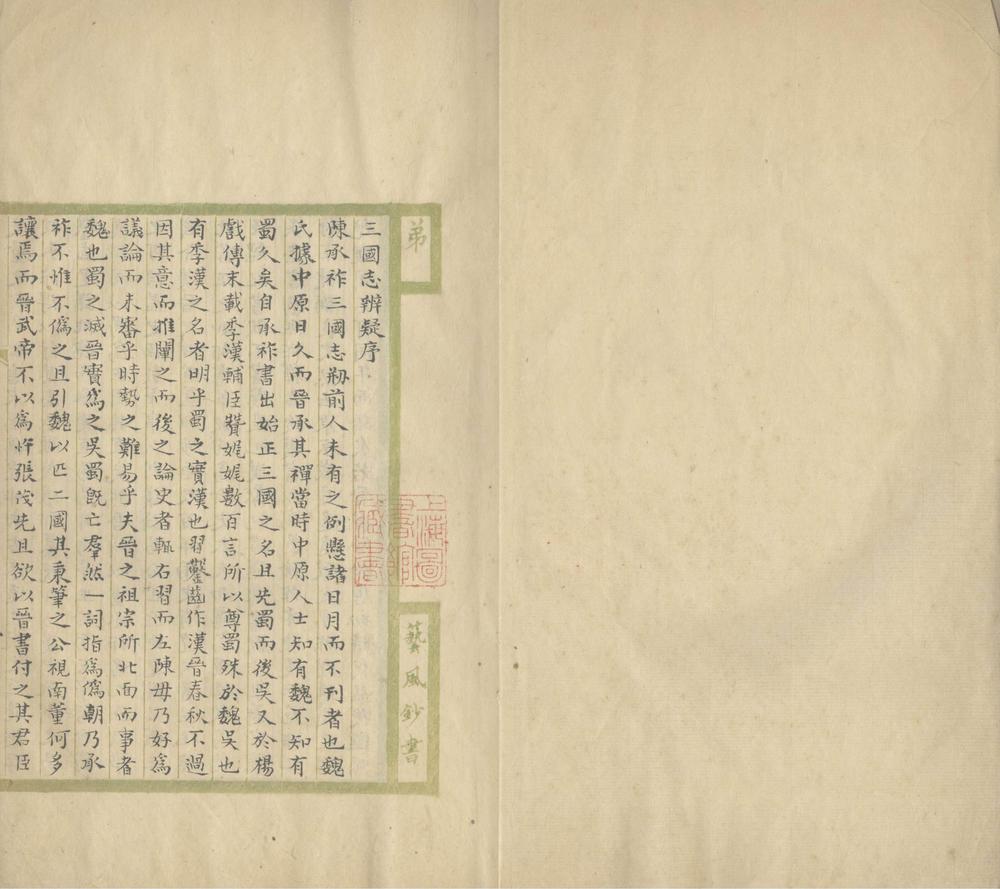 三國志辨疑序
陳承祚三國志剏前人未有之例懸諸日月而不刊者也魏
氏據中原日久而晉承其禪當時中原人士知有魏不知有
蜀久矣自承祚書出始正三國之名且先蜀而後吳又於楊
戲傳末載季漢輔臣贊娓娓數百言所以尊蜀殊於魏吳也
有季漢之名者明乎蜀之實漢也習鑿齒作漢晉春秋不過
因其意而推闡之而後之論史者輒右習而左陳毋乃好為
議論而未審乎時勢之難易乎夫晉之祖宗所北面而事者
魏也蜀之滅晉實為之吳蜀既亡羣然一詞指為僞朝乃承
祚不惟不僞之且引魏以匹二國其秉筆之公視南董何多
讓焉而晉武帝不以為忤張茂先且欲以晉書付之其君臣
弟
藝風鈔書
上海圖
書館
藏書